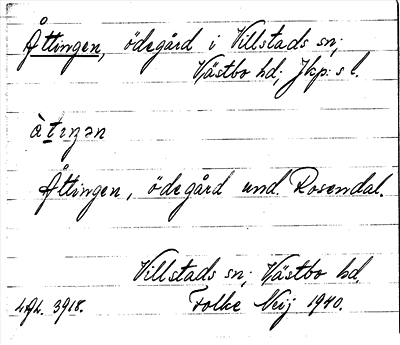 Åttingen, ödegård i Villstads sn;
Västbo hd; Jkp:s l.
àtıŋən
Åttingen, ödegård und Rosendal.
Villstads sn; Västbo hd.
3918. Folke Neij 1940.